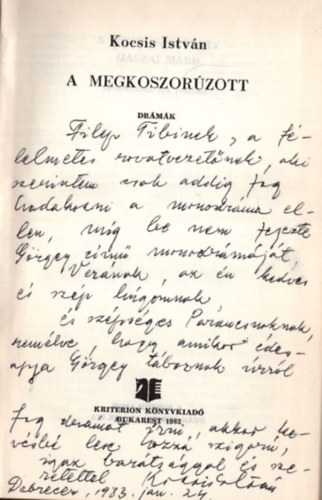 Kocsis István
A MEGKOSZORÚZOTT
DRÁMÁK
Filep Tibinek, a fé-
lelmetes rovatvezetőnek, aki
szerintem csak addig fog
hadakozni a monodráma el-
len, míg be nem fejezte
Görgey című monodrámáját,
Verának, az én kedves
és szép húgomnak
és szépséges Parancsnoknak,
remélve, hogy amikor édes-
apja Görgey tábornok úrról
KRITERION KÖNYVKIADÓ
BUKAREST 1982
fog drámát írni, akkor ke-
vésbé lesz hozzá szigorú,
igaz barátsággal és sze-
retettel Kocsis István
Debrecen, 1983. jan. 24.